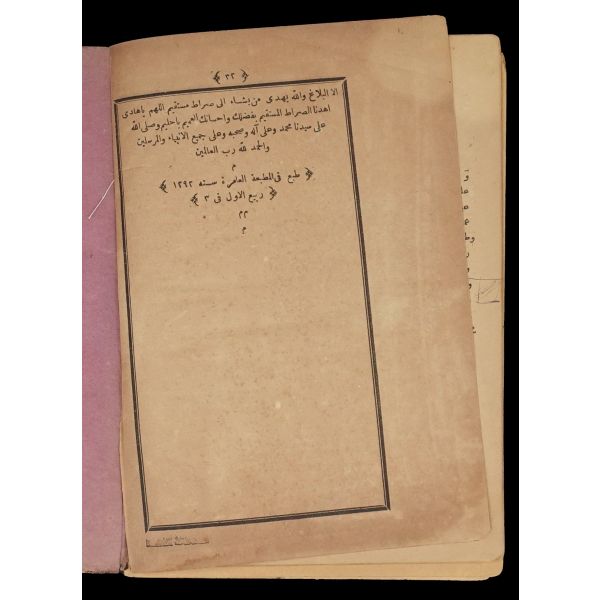 ﴿ ٣٢ ﴾
الا البلاغ والله يهدى من يشاء الى صراط مستقيم اللهم ياهادى
اهدنا الصراط المستقيم بفضلك واحسانك العميم ياحليم وصلى الله
على سيدنا محمد وعلى آله وصحبه وعلى جميع الانبياء والمرسلين
والحمد لله رب العالمين
م
﴿ طبع فى المطبعة العامرة سنه ١٢٩٢ ﴾
﴿ ربيع الاول فى ٣ ﴾
م م
م